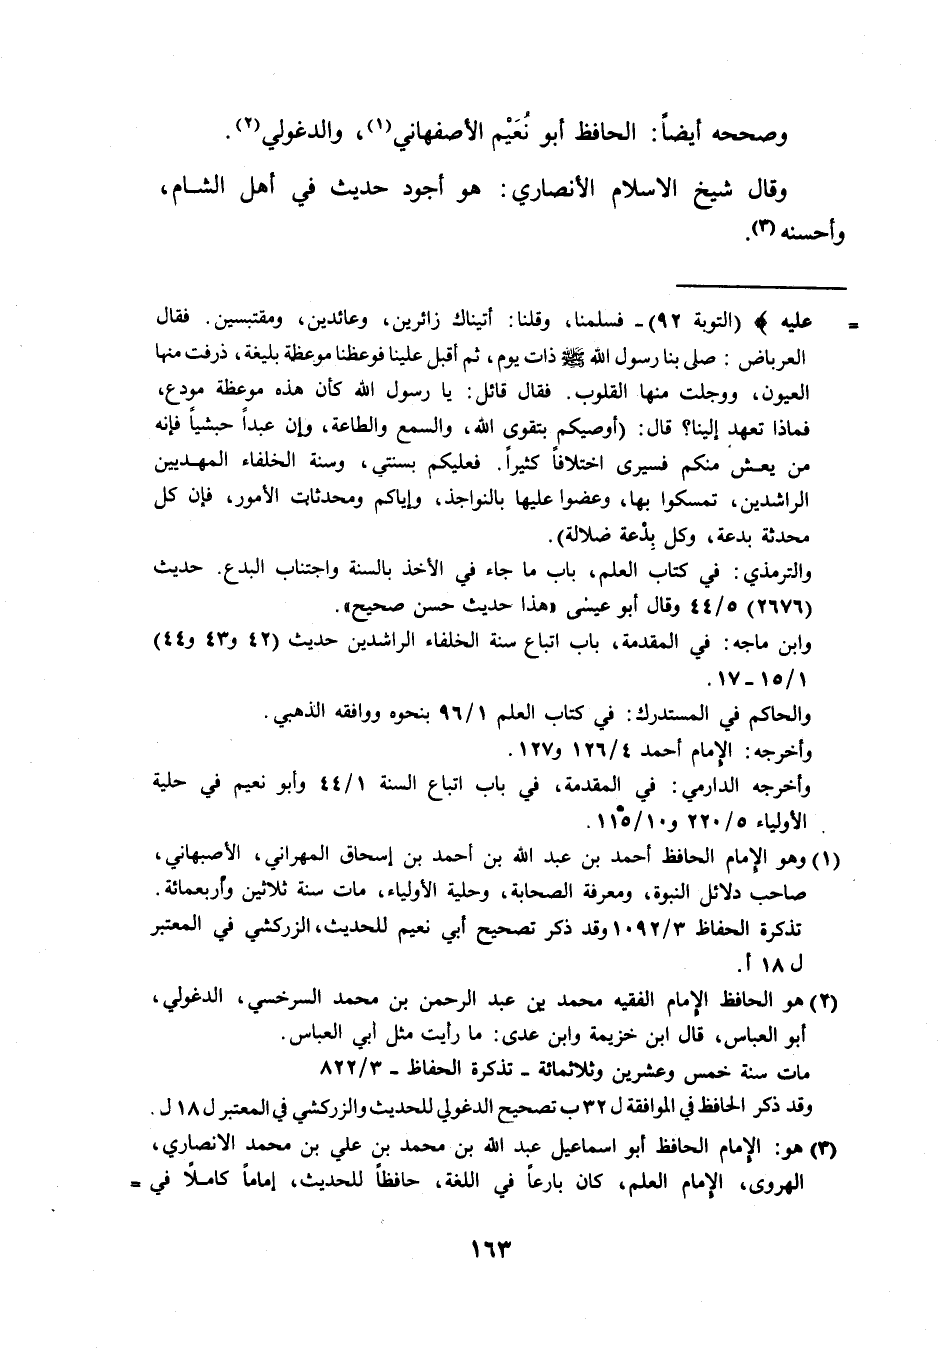 وصححه أيضاً: الحافظ أبو نُعَيْم الأصفهاني(١)، والدغولي(٢).
وقال شيخ الاسلام الأنصاري: هو أجود حديث في أهل الشام،
وأحسنه(٣).
= عليه ﴾ (التوبة ٩٢)ـ فسلمنا، وقلنا: أتيناك زائرين، وعائدين، ومقتبسين. فقال
العرباض: صلى بنا رسول الله ﷺ ذات يوم، ثم أقبل علينا فوعظنا موعظة بليغة، ذرفت منها
العيون، ووجلت منها القلوب. فقال قائل: يا رسول الله كأن هذه موعظة مودع،
فماذا تعهد إلينا؟ قال: (أوصيكم بتقوى الله، والسمع والطاعة، وإن عبداً حبشياً فإنه
من يعش منكم فسيرى اختلافاً كثيراً. فعليكم بسنتي، وسنة الخلفاء المهديين
الراشدين، تمسكوا بها، وعضوا عليها بالنواجذ، وإياكم ومحدثات الأمور، فإن كل
محدثة بدعة، وكل بِدْعة ضلالة).
والترمذي: في كتاب العلم، باب ما جاء في الأخذ بالسنة واجتناب البدع. حديث
(٢٦٧٦) ٤٤/٥ وقال أبو عيسى «هذا حديث حسن صحيح».
وابن ماجه: في المقدمة، باب اتباع سنة الخلفاء الراشدين حديث (٤٢ و٤٣ و٤٤)
١٥/١ ـ ١٧.
والحاكم في المستدرك: في كتاب العلم ٩٦/١ بنحوه ووافقه الذهبي.
وأخرجه: الإمام أحمد ١٢٦/٤ و١٢٧.
وأخرجه الدارمي: في المقدمة، في باب اتباع السنة ٤٤/١ وأبو نعيم في حلية
الأولياء ٢٢٠/٥ و١١٥/١٠.
(١) وهو الإمام الحافظ أحمد بن عبد الله بن أحمد بن إسحاق المهراني، الأصبهاني،
صاحب دلائل النبوة، ومعرفة الصحابة، وحلية الأولياء، مات سنة ثلاثين وأربعمائة.
تذكرة الحفاظ ١٠٩٢/٣ وقد ذكر تصحيح أبي نعيم للحديث، الزركشي في المعتبر
ل ١٨ أ.
(٢) هو الحافظ الإمام الفقيه محمد بن عبد الرحمن بن محمد السرخسي، الدغولي،
أبو العباس، قال ابن خزيمة وابن عدى: ما رأيت مثل أبي العباس.
مات سنة خمس وعشرين وثلاثمائة ـ تذكرة الحفاظ ـ ٨٢٢/٣
وقد ذكر الحافظ في الموافقة ل ٣٢ ب تصحيح الدغولي للحديث والزركشي في المعتبر ل ١٨ ل.
(٣) هو: الإمام الحافظ أبو اسماعيل عبد الله بن محمد بن علي بن محمد الانصاري،
الهروى، الإمام العلم، كان بارعاً في اللغة، حافظاً للحديث، إماماً كاملًا في =
١٦٣